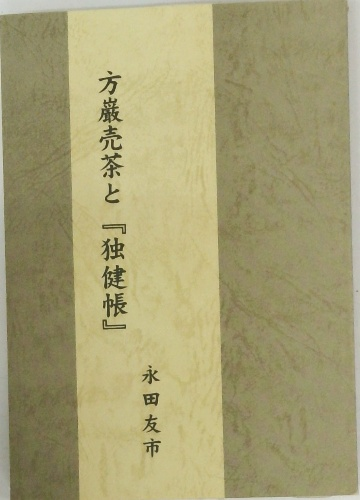 方巌売茶と『独健帳』
永田友市